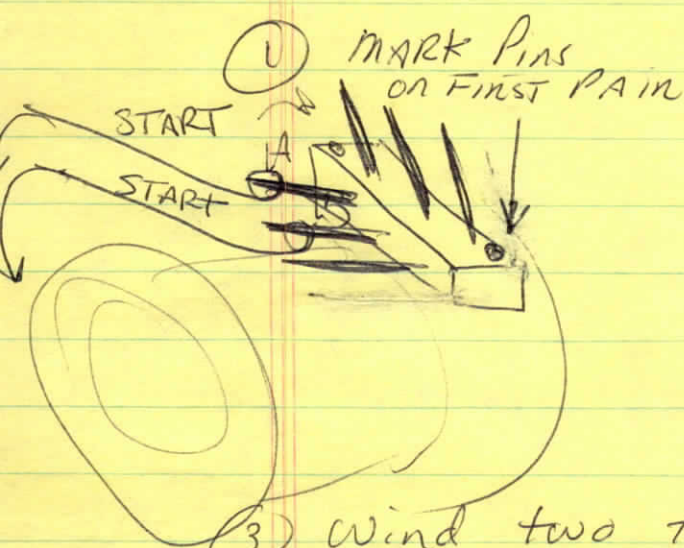 U MARK PINS
ON FIRST PAIR
START
A
START
(3) Wind two